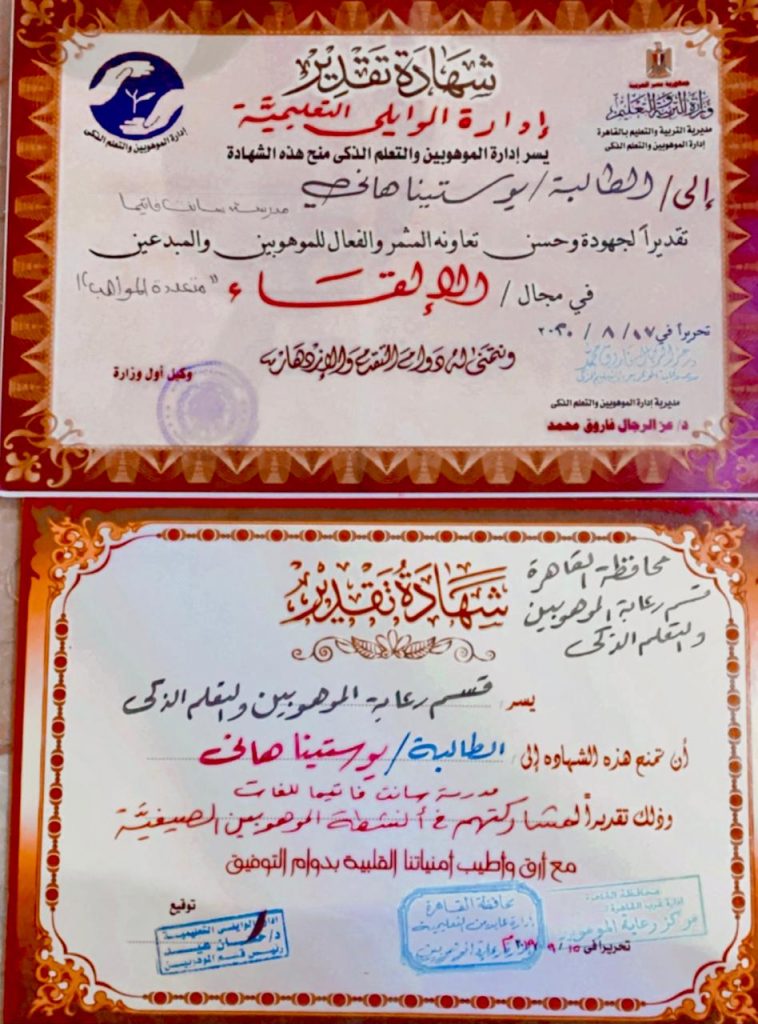 شهادة تقدير
جمهورية مصر العربية
وزارة التربية والتعليم
مديرية التربية والتعليم بالقاهرة
إدارة الموهوبين والتعلم الذكى
إدارة الموهوبين والتعلم الذكى
إدارة الوايلى التعليمية
يسر إدارة الموهوبين والتعلم الذكى منح هذه الشهادة
إلى / الطالبة / يوستينا هانى
مدرسة سانت فاتيما
تقديراً لجهودة وحسن تعاونه المثمر والفعال للموهوبين والمبدعين
في مجال / الإلقاء "متعددة المواهب"
تحريراً في / ٨ /
ونتمنى له دوام التقدم والإزدهار
وكيل أول وزارة
مديرية إدارة الموهوبين والتعلم الذكى
د/ عز الرجال فاروق محمد
محافظة القاهرة
قسم رعاية الموهوبين
والتعلم الذكى
شهادة تقدير
يسر قسم رعاية الموهوبين والتعلم الذكى
أن تمنح هذه الشهاده إلى الطالبة / يوستينا هانى
مدرسة سانت فاتيما للغات
وذلك تقديراً لمشاركتهم فى أنشطة الموهوبين الصيفية
مع أرق وأطيب أمنياتنا القلبية بدوام التوفيق
توقيع
إدارة الوايلى التعليمية
رئيس قسم الموهوبين
محافظة القاهرة
محافظة القاهرة
مركز رعاية الموهوبين
تحريراً فى